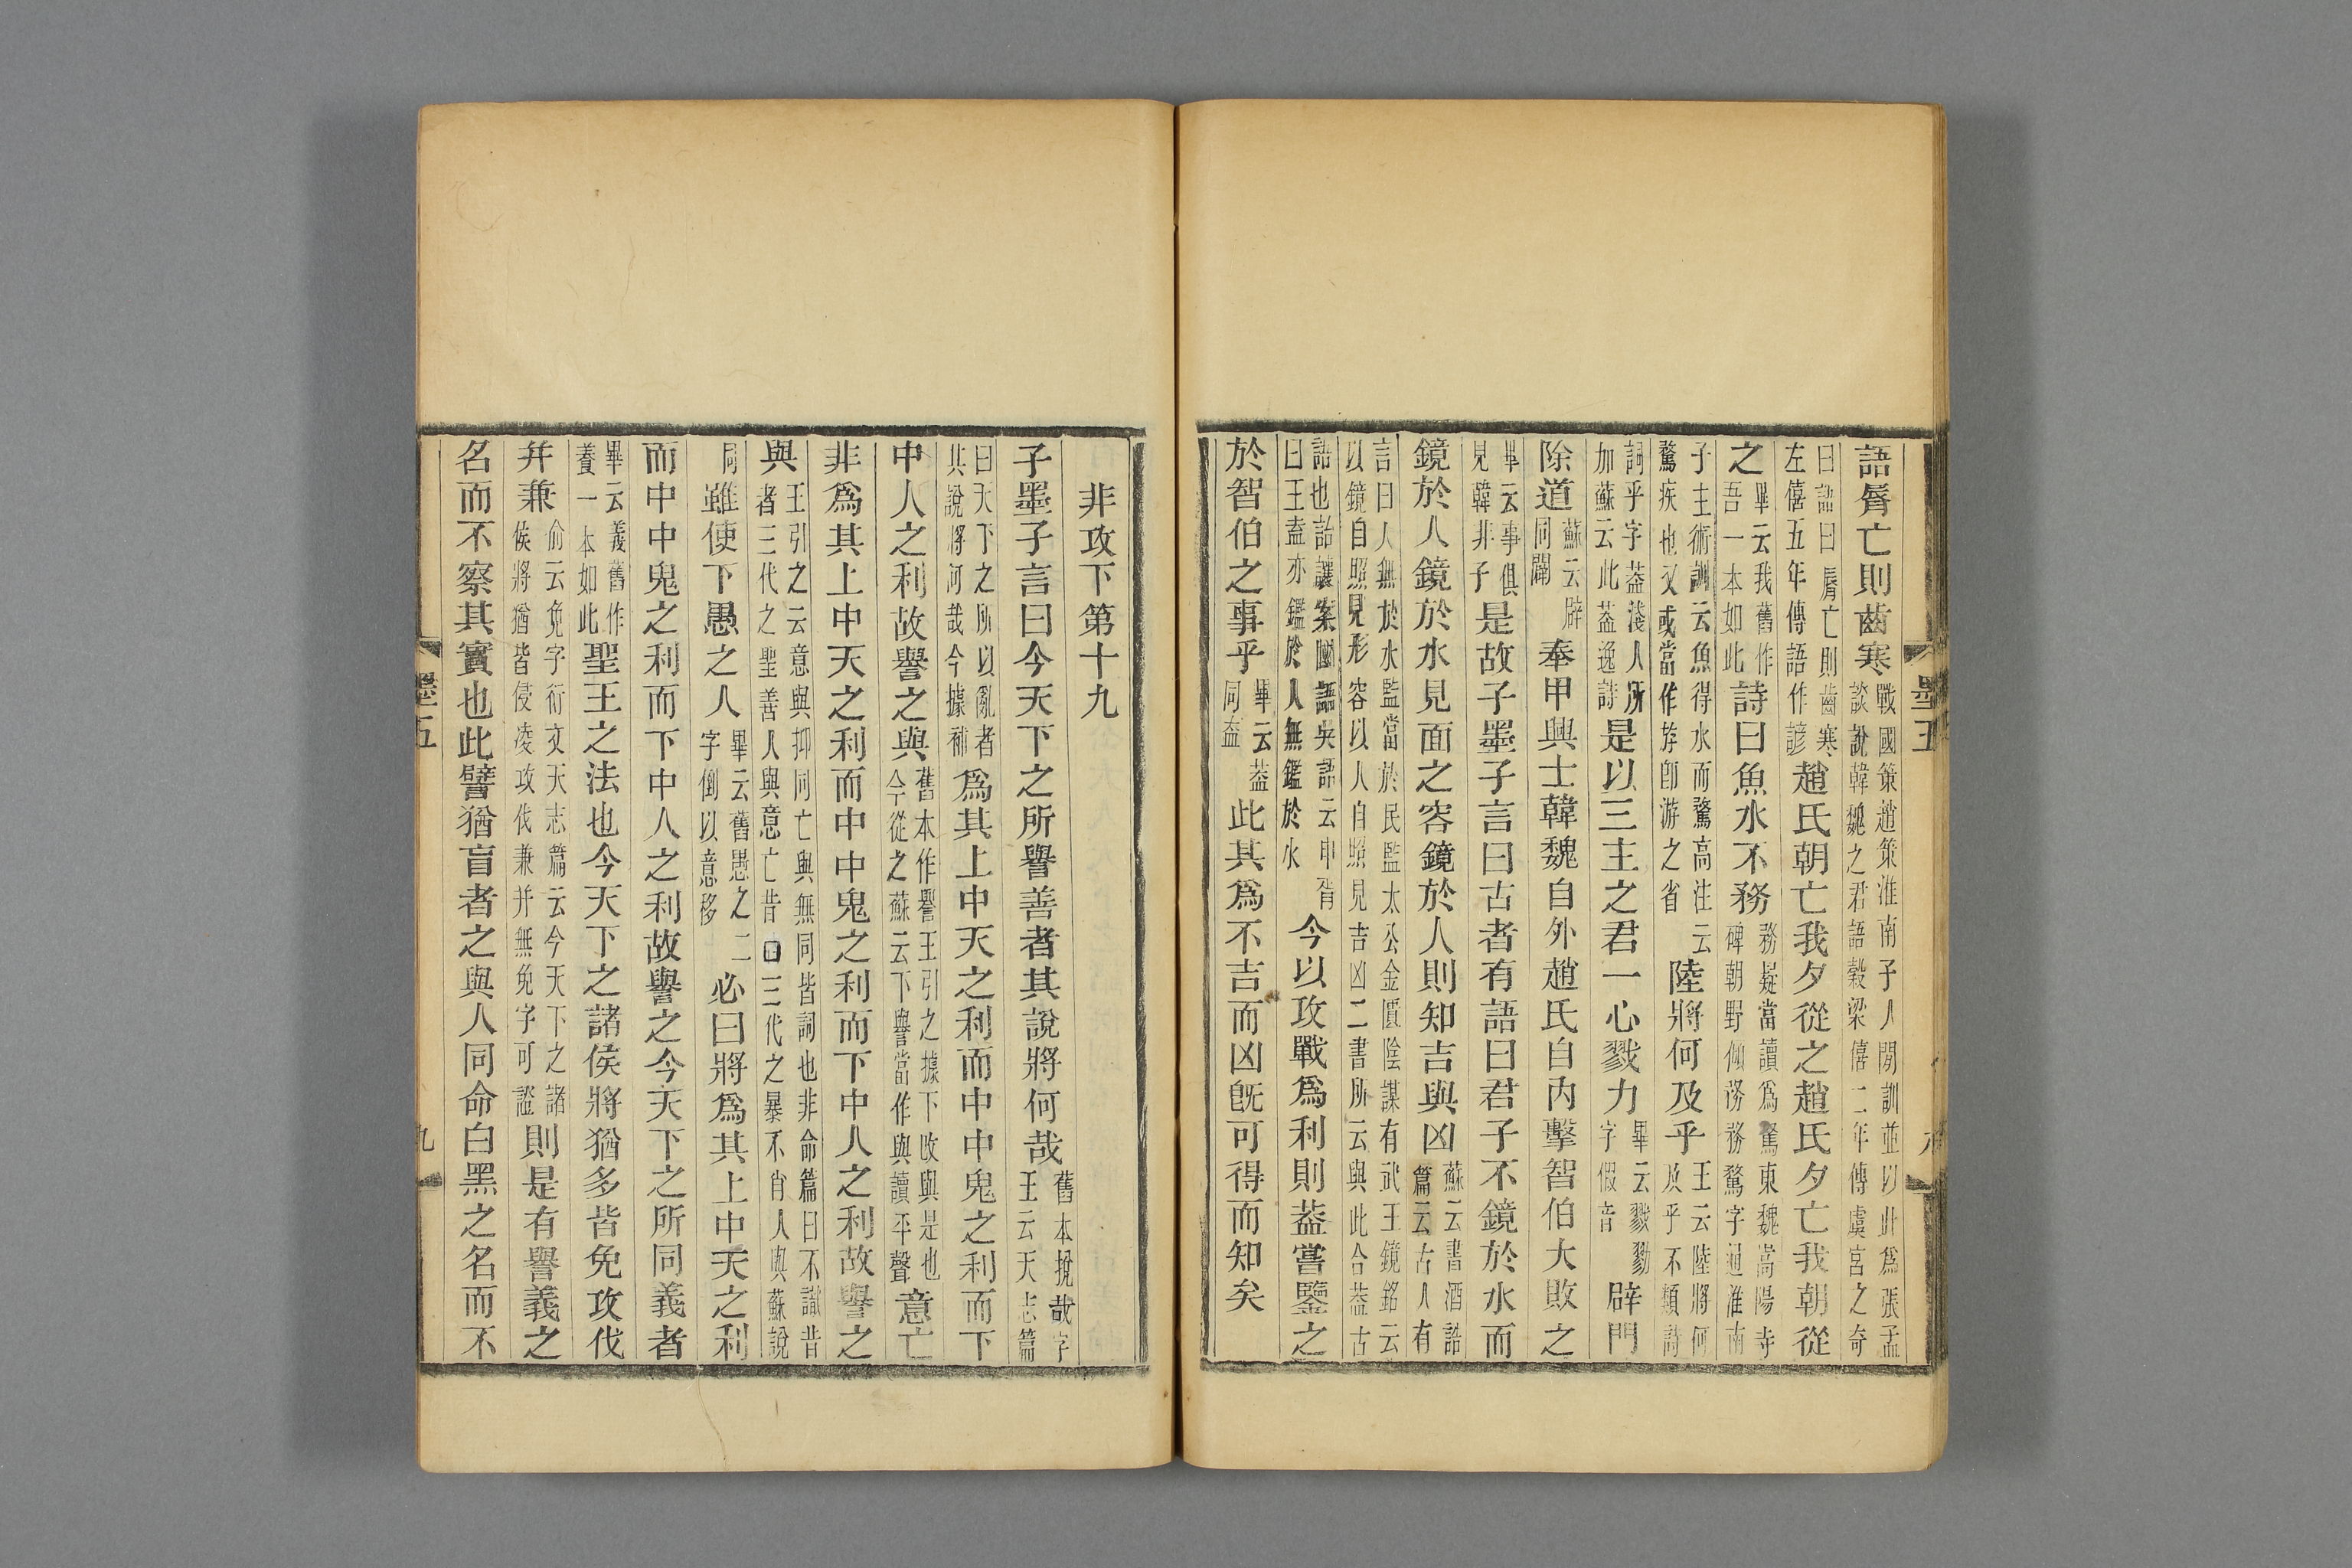 語脣亡則齒寒戰國策趙策淮南子人閒訓並以此爲張孟談說韓魏之君語穀梁僖二年傳虞宮之奇
曰語曰脣亡則齒寒左僖五年傳語作諺趙氏朝亡我夕從之趙氏夕亡我朝從
之畢云我舊作吾一本如此詩曰魚水不務務疑當讀爲騖東魏嵩陽寺碑朝野傾務務騖字通淮南
子主術訓云魚得水而騖高注云騖疾也又或當作斿卽游之省陸將何及乎王云陸將何及乎不類詩
詞乎字葢淺人所加蘇云此葢逸詩是以三主之君一心戮力畢云戮勠字假音辟門
除道蘇云辟同闢奉甲興士韓魏自外趙氏自內擊智伯大敗之
畢云事俱見韓非子是故子墨子言曰古者有語曰君子不鏡於水而
鏡於人鏡於水見面之容鏡於人則知吉與凶蘇云書酒誥篇云古人有
言曰人無於水監當於民監太公金匱陰謀有武王鏡銘云以鏡自照見形容以人自照見吉凶二書所云與此合葢古
語也詒讓案國語吳語云申胥曰王盍亦鑑於人無鑑於水今以攻戰爲利則葢嘗鑒之
於智伯之事乎畢云葢同盍此其爲不吉而凶旣可得而知矣
墨五
非攻下第十九
子墨子言曰今天下之所譽善者其說將何哉舊本挩哉字王云天志篇
曰天下之所以亂者其說將何哉今據補爲其上中天之利而中中鬼之利而下
中人之利故譽之與舊本作譽王引之據下改與是也今從之蘇云下譽當作與讀平聲意亡
非爲其上中天之利而中中鬼之利而下中人之利故譽之
與王引之云意與抑同亡與無同皆詞也非命篇曰不識昔者三代之聖善人與意亡昔三代之暴不肖人與蘇說
同雖使下愚之人畢云舊愚之二字倒以意移必曰將爲其上中天之利
而中中鬼之利而下中人之利故譽之今天下之所同義者
畢云義舊作養一本如此聖王之法也今天下之諸侯將猶多皆免攻伐
幷兼俞云免字衍文天志篇云今天下之諸侯將猶皆侵凌攻伐兼幷無免字可證則是有譽義之
名而不察其實也此譬猶盲者之與人同命白黑之名而不
墨五
九